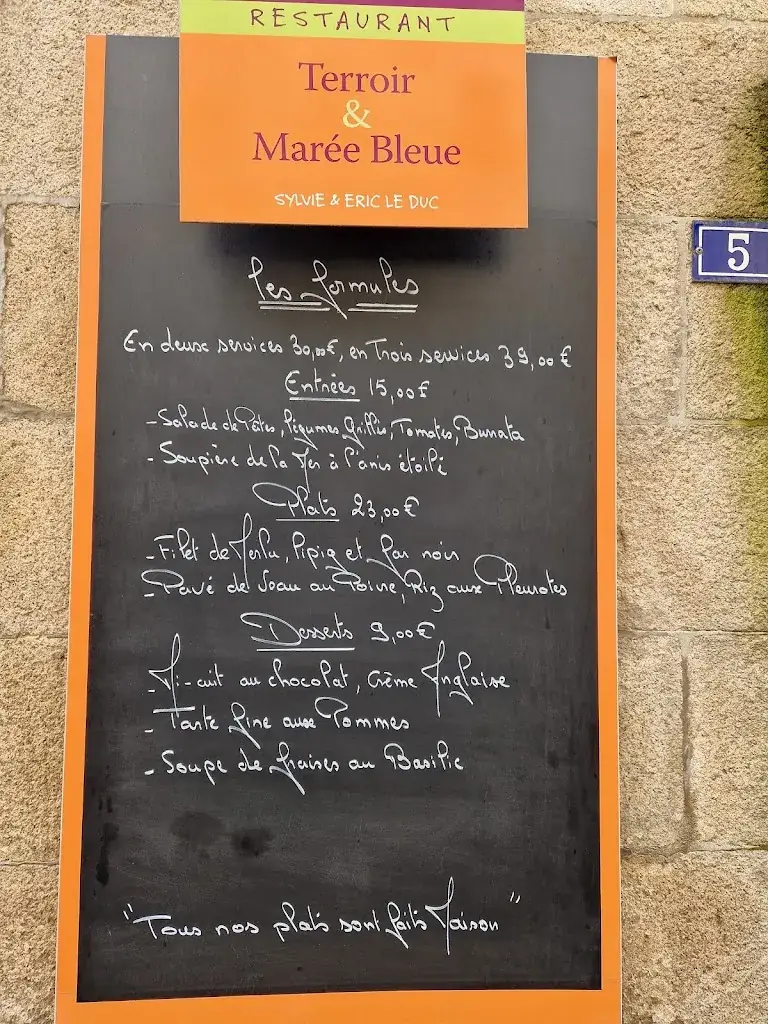 RESTAURANT
Terroir
&
Marée Bleue
SYLVIE & ERIC LE DUC
5
Les formules
En deux services 30,00€, en Trois services 39,00€
Entrées 15,00€
- Salade de Pâtes, Légumes Grillés, Tomates, Burrata
- Soupière de la Mer à l'anis étoilé
Plats 23,00€
- Filet de Merlu, Pipig et far noir
- Pavé de Veau au Poivre, Riz aux Pleurotes
Desserts 9,00€
- Mi-cuit au chocolat, Crème Anglaise
- Tarte fine aux Pommes
- Soupe de fraises au Basilic
"Tous nos plats sont faits Maison"